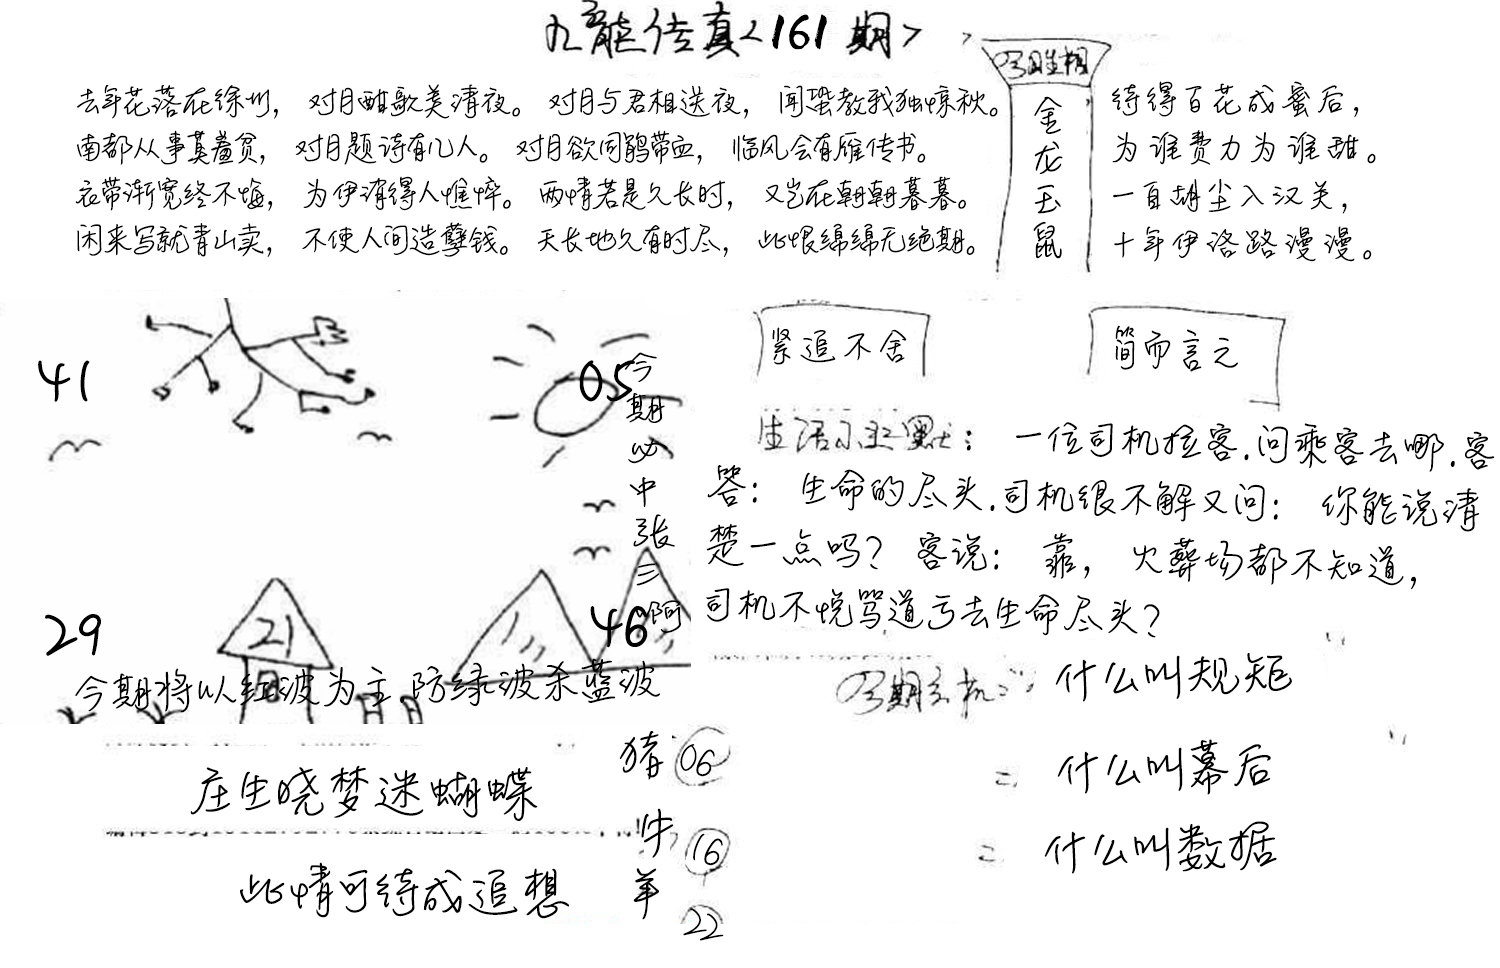 九龍传真<161期>
去年花落在徐州，对月酣歌美清夜。对月与君相送夜，闻蛩教我独惊秋。
南都从事莫羞贫，对月题诗有几人。对月欲问鹃带血，临风会有雁传书。
衣带渐宽终不悔，为伊消得人憔悴。两情若是久长时，又岂在朝朝暮暮。
闲来写就青山卖，不使人间造孽钱。天长地久有时尽，此恨绵绵无绝期。
今日生相
金龙玉鼠
待得百花成蜜后，
为谁费力为谁甜。
一自胡尘入汉关，
十年伊洛路漫漫。
41
05
29
46
21
今期必中张三啊
今期将以红波为主 防绿波杀蓝波
庄生晓梦迷蝴蝶
此情可待成追想
猪 06
牛 16
羊 22
紧追不舍
简而言之
生活小幽默：一位司机拉客.问乘客去哪.客
答：生命的尽头.司机很不解又问：你能说清
楚一点吗？客说：靠，火葬场都不知道，
司机不悦骂道亏去生命尽头？
什么叫规矩
= 什么叫幕后
= 什么叫数据